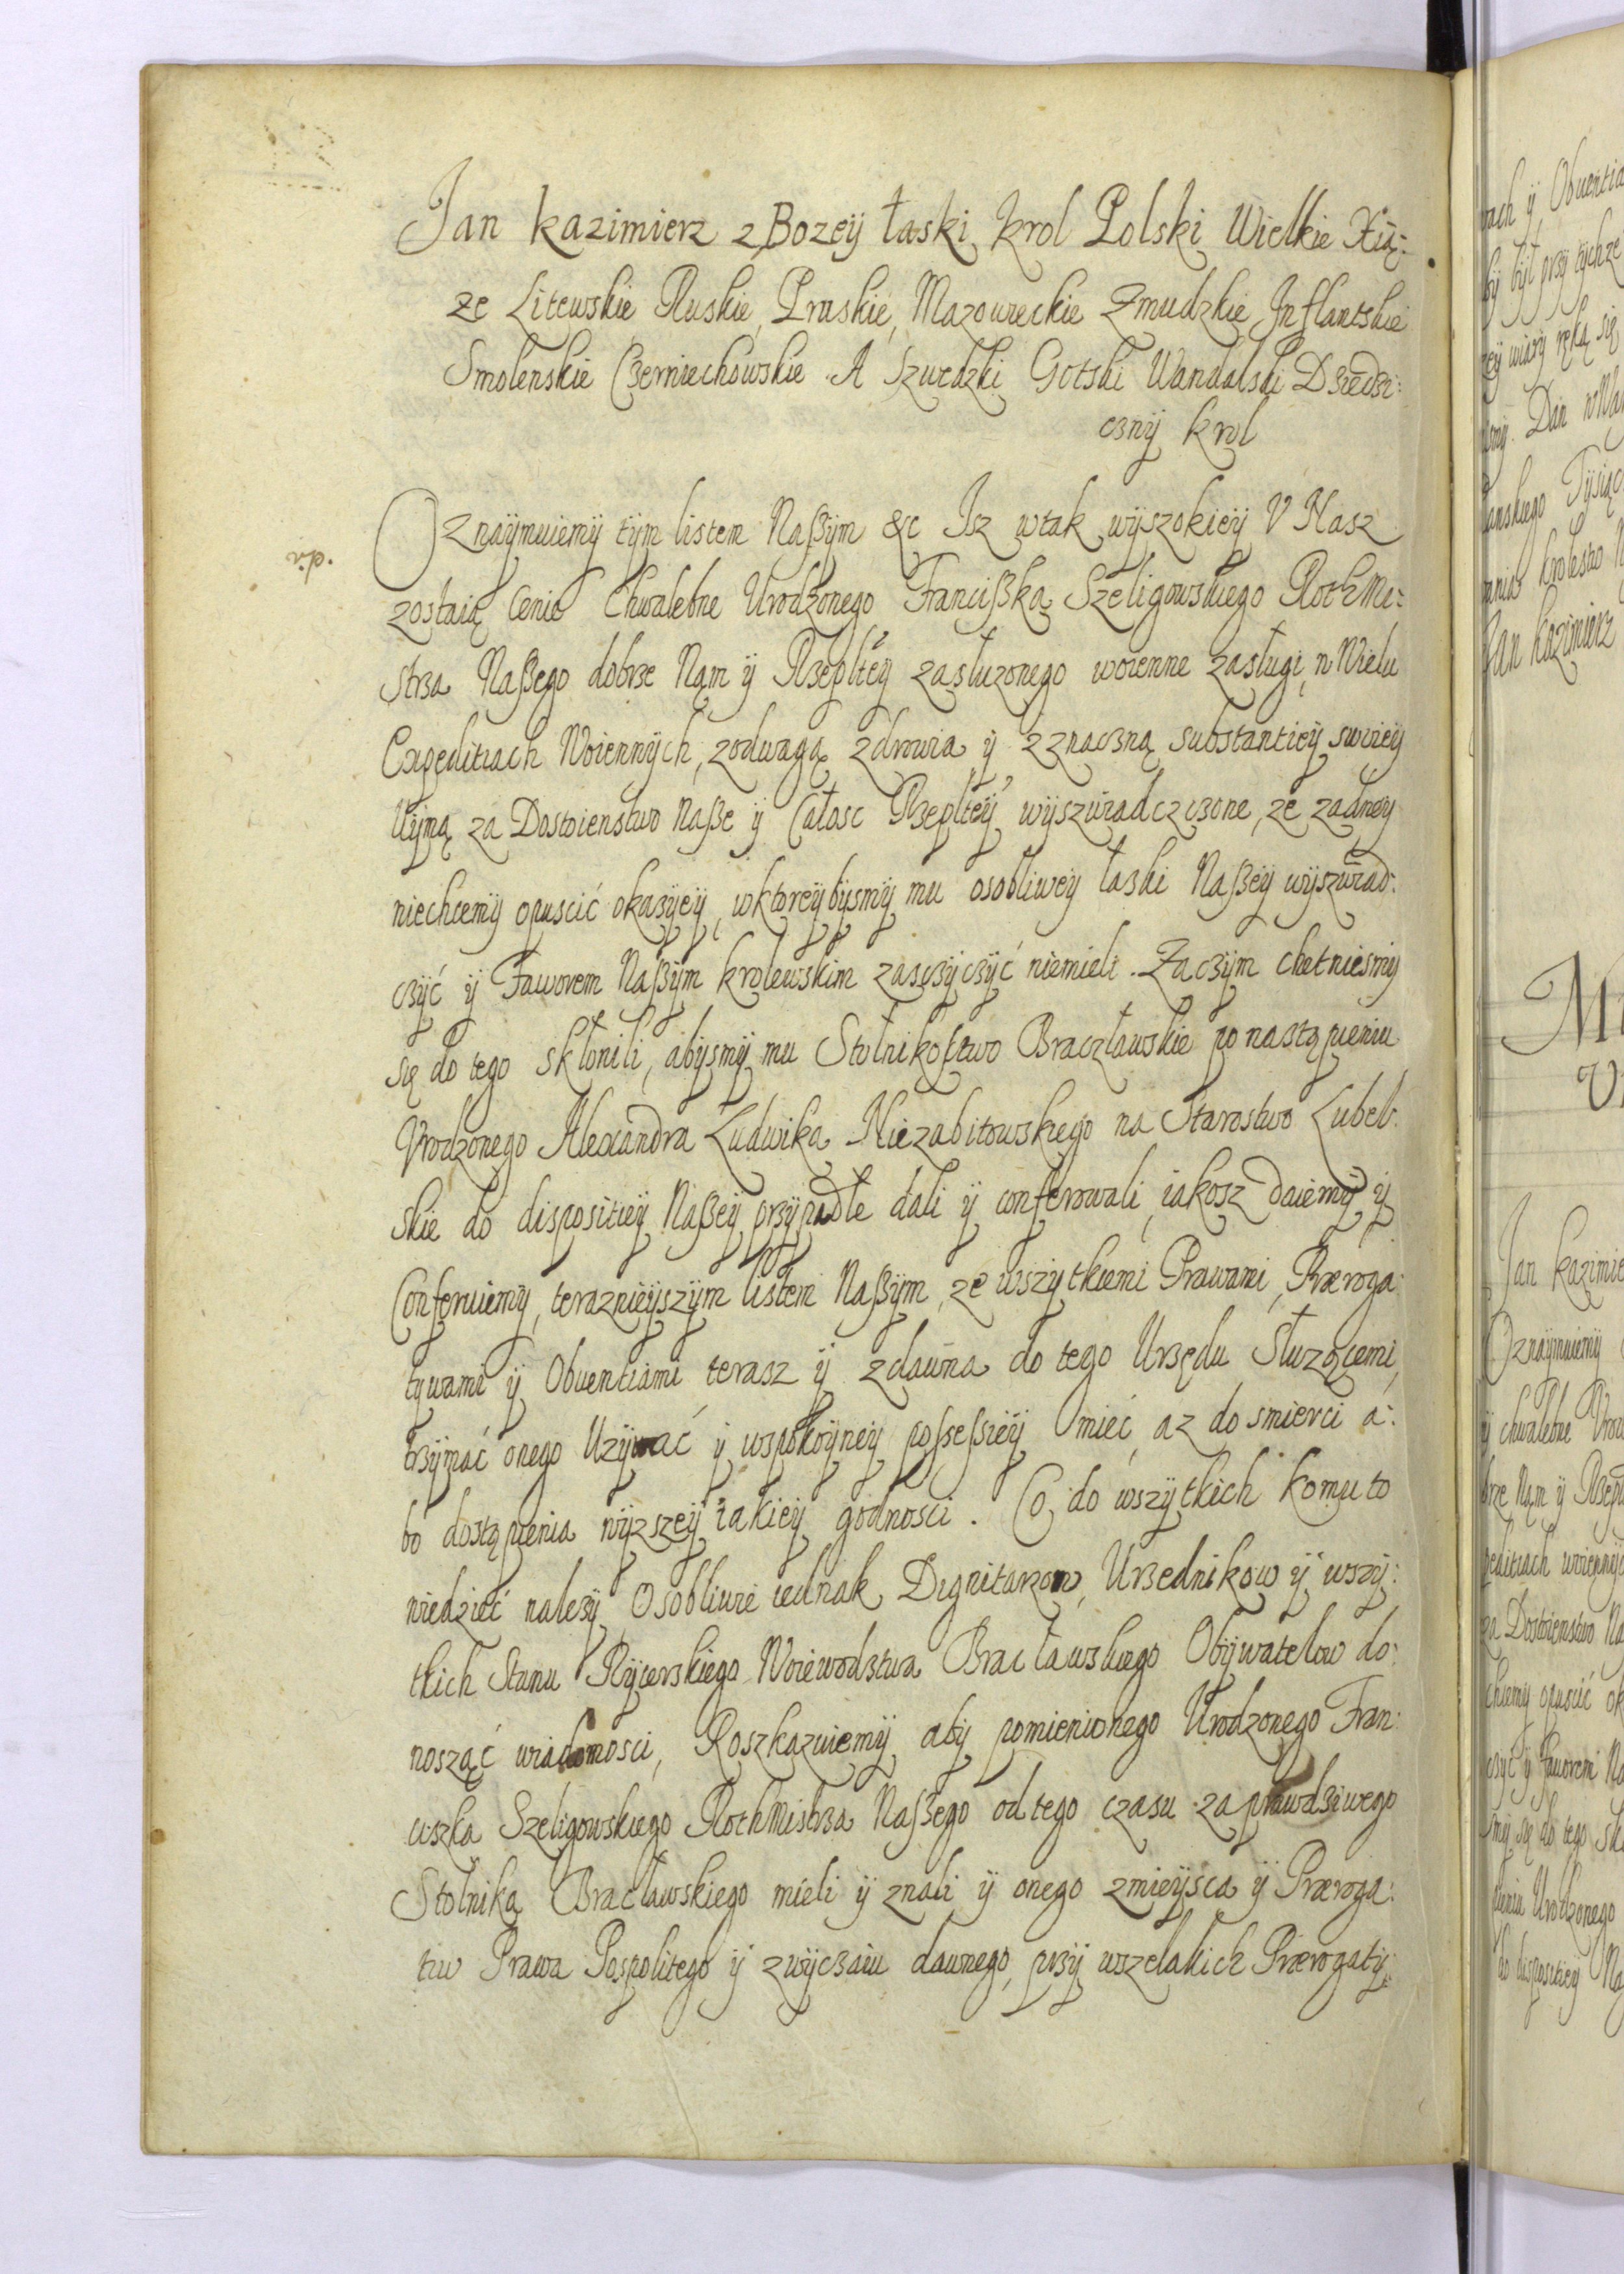 Jan kazimierz z Bozey łaski krol Polski Wielkie Xią:
ze Litewskie Ruskie, Pruskie, Mazowieckie Zmudzkie Inflantskie
Smolenskie Czerniechowskie. A Szwedzki Gotski Wandalski Dziedzi:
czny krol
Oznaymuiemy tym listem Naßym &c Isz wtak wyszokiey V Nasz
zostaią Cenie Chwalebne Urodzonego Francißka Szeligowskiego Rothmi:
strza Naßego dobrze Nam y Rzepltey zasłuzonego woienne zasługi, w Wielu
Expeditiach Woiennych, zodwagą zdrowia y zznaczną substantiey swoiey
Uymą za Dostoienstwo Naße y Całosc Rzeplтey wyszwiadczczone, ze zadney
niechcemy opuscić okazyey, wktoreybysmy mu osobliwey łaski Naßey wyszwiad:
czyć y Faworem Naßym krolewskim zasczyczyć niemieli. Zaczym chetniesmy
się do tego skłonili, abysmy mu Stolnikostwo Braczławskie po nastąpieniu
Vrodzonego Alexandra Ludwika Niezabitowskiego na Starostwo Lubel:
skie do dispositiey Naßey przypadłe dali y conferowali, iakosz daiemy y
Conferuiemy, teraznieyszym listem Naßym, ze wszytkiemi Prawami, Præroga:
tywami y Obuentiami terasz y zdawna do tego Urzędu Słuzącemi,
trzymać onego Uzywać y wspokoyney poßeßiey mieć, az do smierci a:
bo dostąpienia wyzszey iakiey godnosci. Co do wszytkich komu to
wiedzieć nalezy Osobliwie iednak Dignitarzow, Urzednikow y wszy:
tkich Stanu Rycerskiego Woiewodztwa Bracławskiego Obywatelow do:
nosząć wiadomosci, Roszkazuiemy aby pomienionego Urodzonego Fran:
ciszka Szeligowskiego Rothmistrza Naßego odtego czasu zaprawdziwego
Stolnika Bracławskiego mieli y znali y onego zmieysca y Præroga:
tiw Prawa Pospolitego y zwyczaiu dawnego, przy wszelakich Prærogaty: